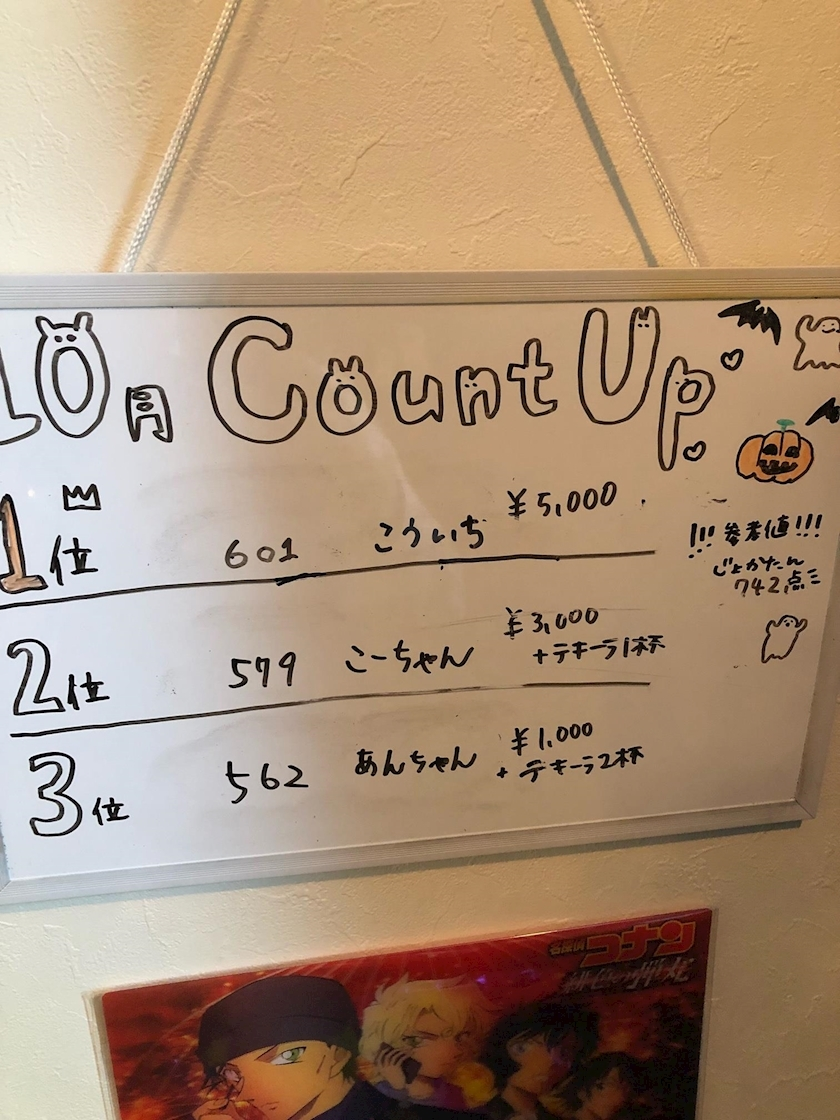 10月 Count Up
1位 601 こういち ¥5,000
!!!参考値!!!
じょかたん
742点
2位 579 こーちゃん ¥3,000
+テキーラ1杯
3位 562 あんちゃん ¥1,000
+テキーラ2杯
名探偵
コナン
緋色の弾丸